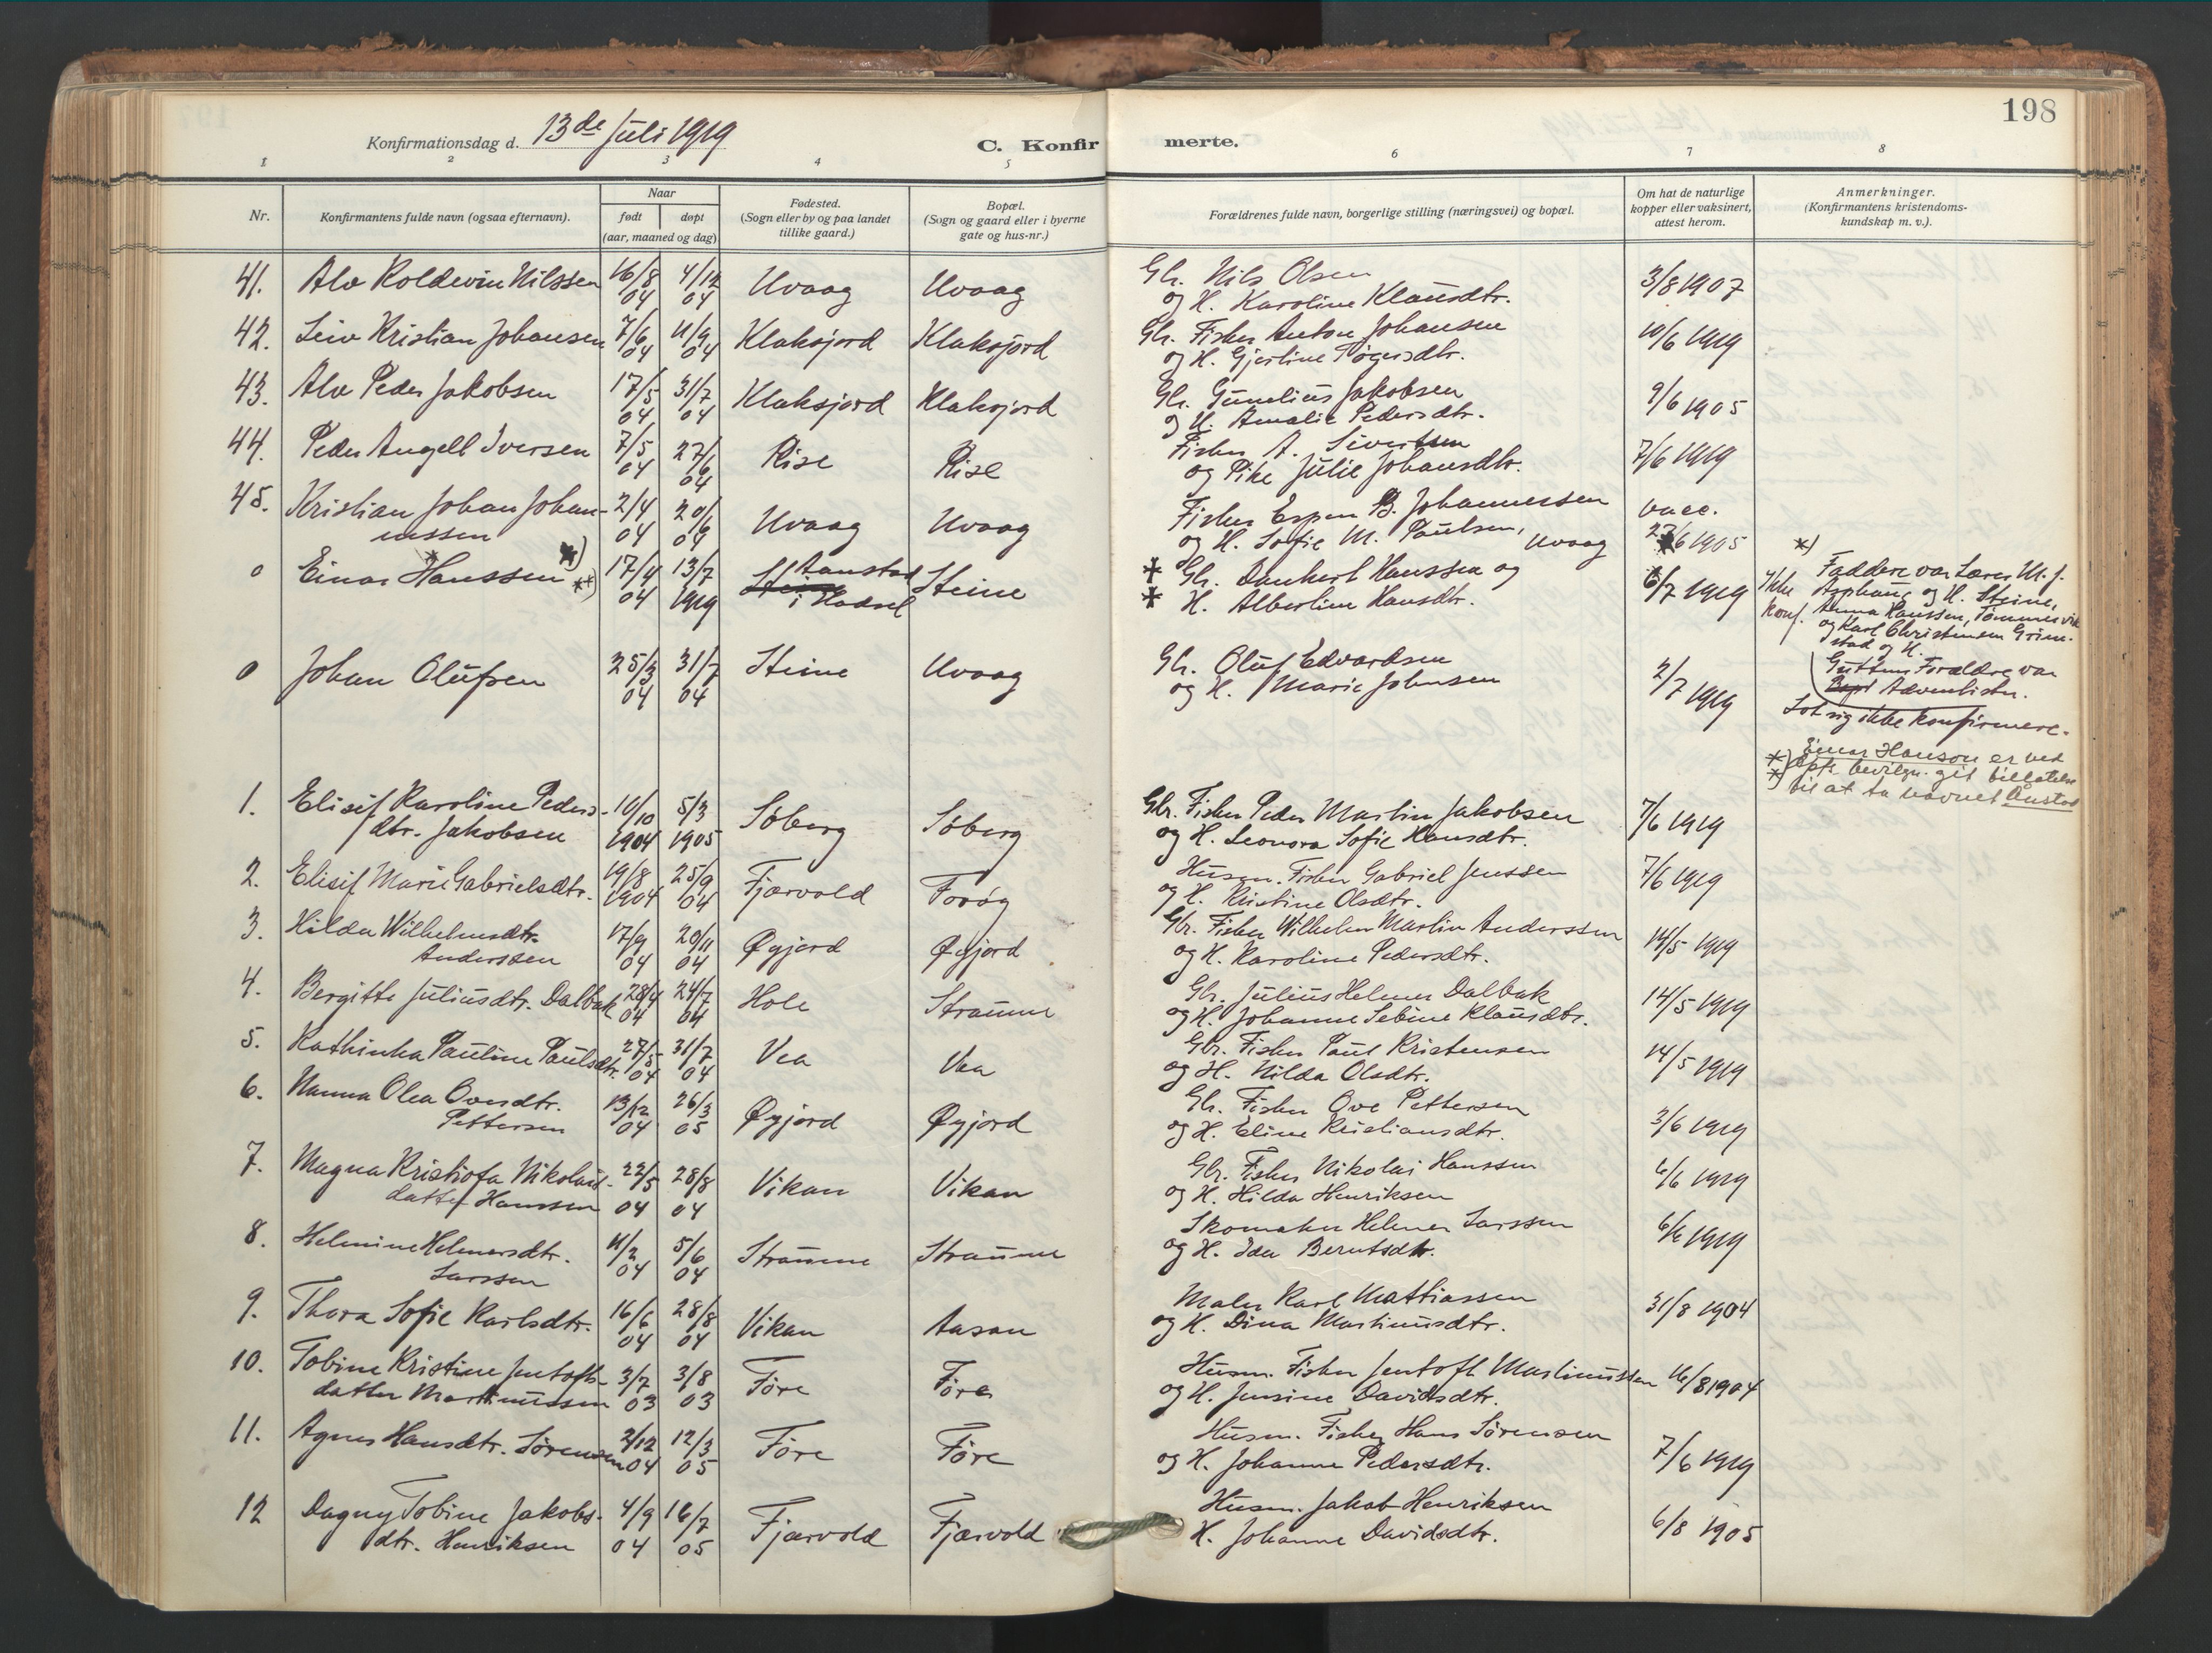 198
Konfirmationsdag d. 13de Juli 1919
C. Konfirmerte.
1 2 3 4 5 6 7 8
Nr.
Konfirmantens fulde navn (ogsaa efternavn).
Naar
født døpt
(aar, maaned og dag)
Fødested.
(Sogn eller by og paa landet
tillike gaard.)
Bopæl.
(Sogn og gaard eller i byerne
gate og hus-nr.)
Forældrenes fulde navn, borgerlige stilling (næringsvei) og bopæl.
Om hat de naturlige
kopper eller vaksinert,
attest herom.
Anmerkninger.
(Konfirmantens kristendoms-
kundskap m. v.).
41. Alv Koldevin Nilssen 16/8 04 4/12 04 Uvaag Uvaag Gbr. Nils Olsen 3/8 1907
og H. Karoline Klausdtr.
42. Leiv Kristian Johansen 7/6 04 11/9 04 Klaksjord Klaksjord Gbr. Fisker Anton Johansen 10/6 1919
og H. Gjertine
43. Alv Peder Jakobsen 17/5 04 31/7 04 Klaksjord Klaksjord Gbr. Gunelius Jakobsen 9/6 1905
og H. Amalie Pedersdtr.
44. Peder Angell Iversen 7/5 04 27/6 04 Rise Rise Fisker A. Sivertsen 7/6 1919
og Pike Julie Johansdtr.
45. Kristian Johan Johan- 2/4 04 Uvaag Uvaag Fisker Espen B. Johannessen vacc.
nessen og H. Sofie M. Paulsen, Uvaag 1905
0 Einar Hanssen *) **) 17/4 04 13/7 1919 Aanstad i Hadsel Steine Gbr. Dankert Hanssen og 6/7 1919
H. Albertine Hansdtr.
*) Faddere var Lærer M. J.
Ikke konf.
og H. Steine,
Anna Hanssen, Tømmervik
og Karl Christensen Grim-
stad og H.
Guttens Forældre var
Adventister.
0 Johan Olufsen 25/3 04 31/7 04 Steine Uvaag Gbr. Oluf Edvardsen 2/7 1919
og H. Marie Johnsen
Lot sig ikke konfirmere.
**) Einar Hanson er ved
bevilgn. git tillatelse
til at ta navnet Ånstad
1. Elisif Karoline Peders- 10/10 1904 5/3 1905 Søberg Søberg Gbr. Fisker Peder Martin Jakobsen 7/6 1919
dtr. Jakobsen og H. Leonora Sofie Hansdtr.
2. Elisif Marie Gabrielsdtr. 19/8 1904 25/9 04 Fjærvold Forøy Husm. Fisker Gabriel Jenssen 7/6 1919
og H. Kristine Olsdtr.
3. Hilda Wilhelmsdtr. 17/9 04 20/11 04 Øyjord Øyjord Gbr. Fisker Wilhelm Martin Anderssen 14/5 1919
Anderssen og H. Karoline Pedersdtr.
4. Bergitte Juliusdtr. Dalbak 28/4 04 24/7 04 Hole Straume Gbr. Julius Helmer Dalbak 14/5 1919
og H. Johanne Sebine Klausdtr.
5. Kathinka Pauline Paulsdtr. 27/5 04 31/7 04 Vea Vea Gbr. Fisker Paul Kristensen 14/5 1919
og H. Hilda Olsdtr.
6. Nanna Olea Ovesdtr. 13/12 04 26/3 05 Øyjord Øyjord Gbr. Fisker Ove Pettersen 3/6 1919
Pettersen og H. Eline Kristiansdtr.
7. Magna Kristofa Nikolais- 22/5 04 28/8 04 Vikan Vikan Gbr. Fisker Nikolai Hanssen 6/6 1919
datter Hanssen og H. Hilda Henriksen
8. Helmine Helmersdtr. 11/2 04 5/6 04 Straume Straume Skomaker Helmer Larssen 6/6 1919
Larssen og H. Ida Berntsdtr.
9. Thora Sofie Karlsdtr. 16/6 04 28/8 04 Vikan Aasan Maler Karl Mattiassen 31/8 1904
og H. Dina Martinusdtr.
10. Tobine Kristine Jentofts- 3/7 03 3/8 03 Føre Føre Husm. Fisker Jentoft Martinussen 16/8 1904
datter Martinussen og H. Jensine Davidsdtr.
11. Agnes Hansdtr. Sørensen 2/12 04 12/3 05 Føre Føre Husm. Fisker Hans Sørensen 7/6 1919
og H. Johanne Pedersdtr.
12 Dagny Tobine Jakobs- 4/9 04 16/7 05 Fjærvold Fjærvold Husm. Jakob Henriksen 6/8 1905
dtr. Henriksen H. Johanne Davidsdtr.